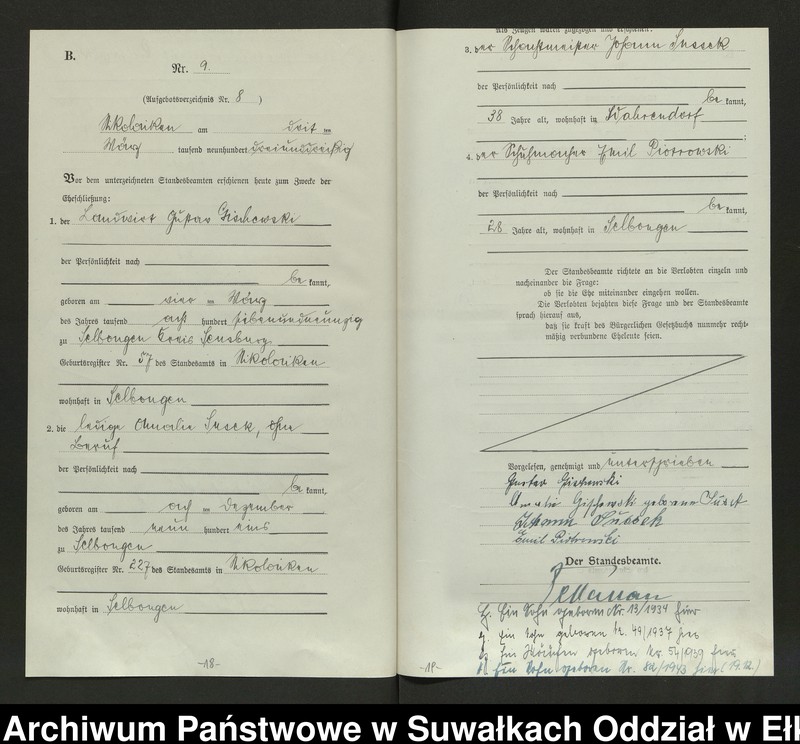 B.
Nr. 9.
(Aufgebotsverzeichnis Nr. 8 )
Nikolaiken am drit ten
März tausend neunhundert dreiunddreißig
Vor dem unterzeichneten Standesbeamten erschienen heute zum Zwecke der
Eheschließung:
1. der Landwirt Gustav Gischewski
der Persönlichkeit nach
be kannt,
geboren am vier ten März
des Jahres tausend acht hundert siebenundneunzig
zu Selbongen Kreis Sensburg
Geburtsregister Nr. 57 des Standesamts in Nikolaiken
wohnhaft in Selbongen
2. die ledige Amalie Sussek, ohne
Beruf
der Persönlichkeit nach
be kannt,
geboren am ach ten Dezember
des Jahres tausend neun hundert eins
zu Selbongen
Geburtsregister Nr. 227 des Standesamts in Nikolaiken
wohnhaft in Selbongen
-18-
Als Zeugen waren zugezogen und erschienen:
3. der Johann Sussek
der Persönlichkeit nach
be kannt,
38 Jahre alt, wohnhaft in
4. der Schuhmacher Emil Piotrowski
der Persönlichkeit nach
be kannt,
28 Jahre alt, wohnhaft in Selbongen
Der Standesbeamte richtete an die Verlobten einzeln und
nacheinander die Frage:
ob sie die Ehe miteinander eingehen wollen.
Die Verlobten bejahten diese Frage und der Standesbeamte
sprach hierauf aus,
daß sie kraft des Bürgerlichen Gesetzbuchs nunmehr recht-
mäßig verbundene Eheleute seien.
Vorgelesen, genehmigt und unterschrieben
Gustav Gischewski
Amalie Gischewski geborene Sussek
Johann Sussek
Emil Piotrowski
Der Standesbeamte.
Ein Sohn geboren Nr. 13/1934 hier
Ein Sohn geboren Nr. 49/1937 hier
Ein Mädchen geboren Nr. 54/1939 hier
Ein Sohn geboren Nr. 82/1943 hier (19.12.)
Archiwum Państwowe w Suwałkach Oddział w Ełk